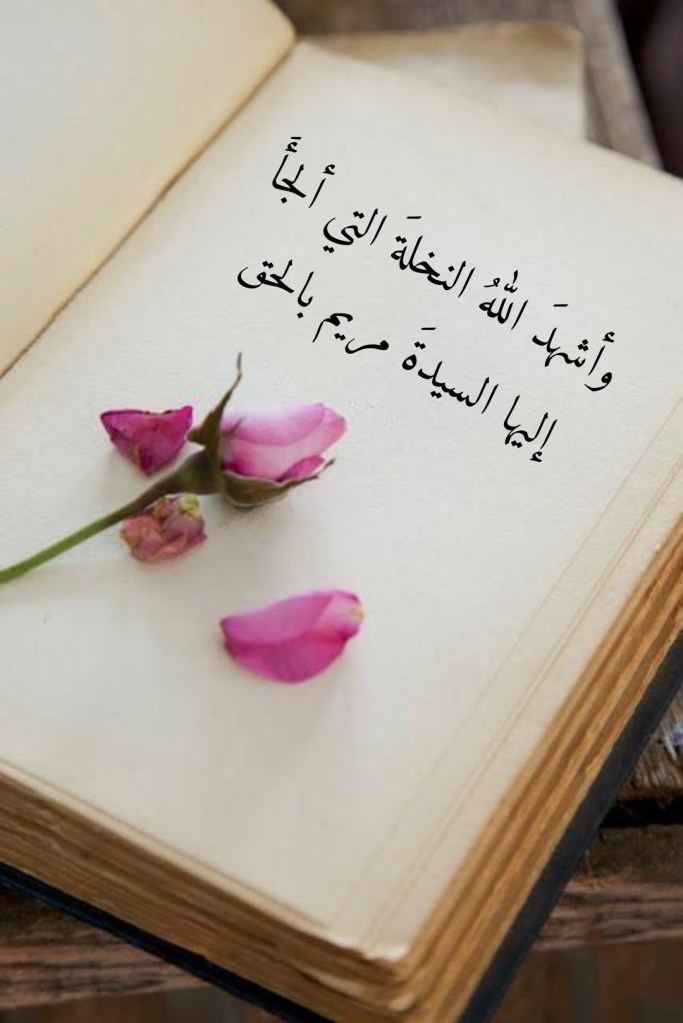 وأشهدَ اللهُ النخلَةَ التي ألجَأَ
إليها السيدةَ مريم بالحق